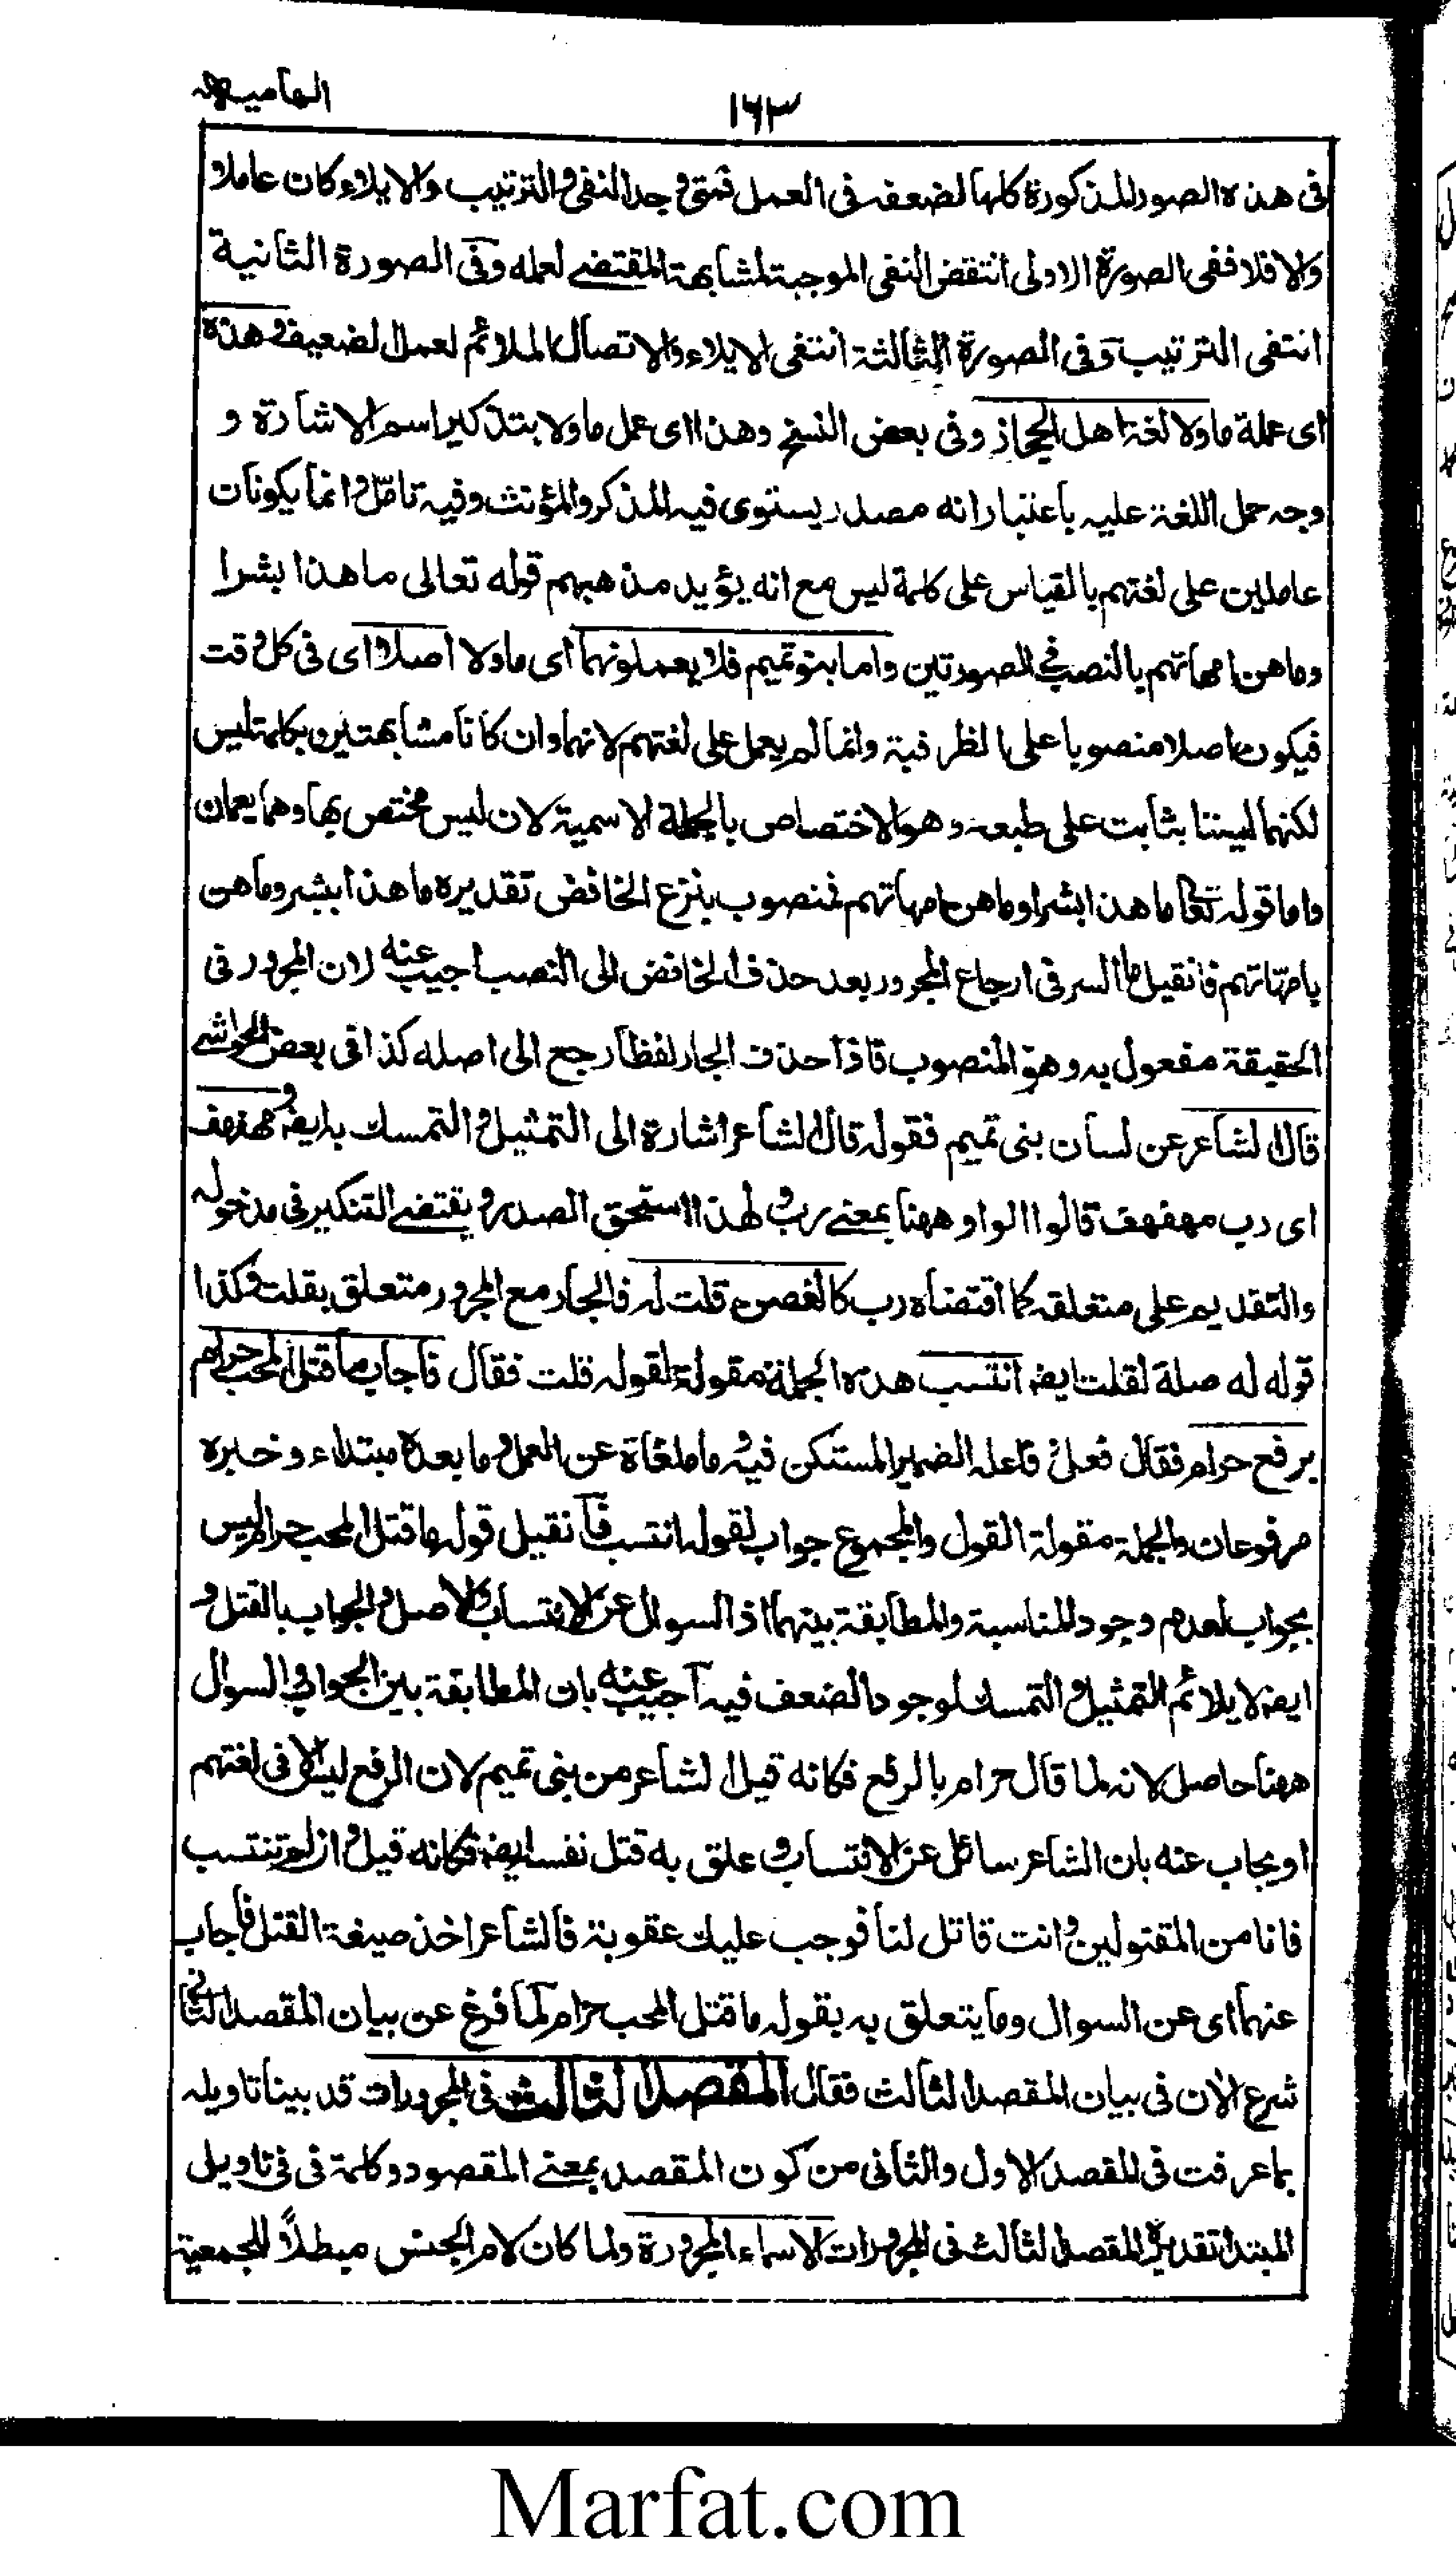 الهامیہ
۱۶۳
فی هذہ الصور المذکورة کلها لضعفہ فی العمل فمتی وجد النفی والترتیب والایلاء کان عاملا
والا فلا ففی الصورة الاولی انتقض النفی الموجبة لمشابهة المقتضے لعمله وفی الصورة الثانیة
انتفی الترتیب وفی الصورة الثالثة انتفی الایلاء والاتصال الملائم لعمل الضعیف وهذہ
ای عملة ما ولا لغة اهل الحجاز وفی بعض النسخ وهذا ای عمل ما ولا بتذکیر اسم الاشارة و
وجہ حمل اللغة علیہ باعتبار انه مصدر یستوی فیہ المذکر والمؤنث وفیہ تامّل وانما یکونان
عاملین علی لغتهم بالقیاس علی کلمة لیس مع انه یؤید مذهبهم قوله تعالی ما هذا بشرا
وما هن امهاتهم بالنصب فی الصورتین واما بنو تمیم فلا یعملونهما ای ما ولا اصلا ای فی کل وقت
فیکون اصلا منصوبا علی الظرفیة وانما لم یعمل علی لغتهم لانهما وان کانا مشابهتین بکلمة لیس
لکنهما لیستا بثابت علی طبعہ وهو الاختصاص بالجملة الاسمیة لان لیس مختص بها وهما یعمان
واما قوله تعا ما هذا بشرا وما هن امهاتهم فمنصوب بنزع الخافض تقدیرہ ما هذا ببشر وما هن
بامهّاتهم فان قیل ما السر فی ارجاع المجرور بعد حذف الخافض الی النصب اجیب عنه لان المجرور فی
الحقیقة مفعول به وهو المنصوب فاذا حذف الجار لفظا رجع الی اصله کذا فی بعض الحواشے
قال الشاعر عن لسان بنی تمیم فقوله قال الشاعر اشارة الی التمثیل والتمسك به ایضہ ومهفهف
ای رب مهفهف قالوا الواو ههنا بمعنے رب ولهذا استحق الصدر ویقتضے التنکیر فی مدخولہ
والتقدیم علی متعلقہ کما اقتضاہ رب کالغصن قلت لہ فالجار مع المجرور متعلق بقلت وکذا
قوله له صلة لقلت ایضہ انتسب هذہ الجملة مقولة لقولہ قلت فقال فاجاب ما قتل المحب حرام
برفع حرام فقال فعل فاعلہ الضمیر المستکن فیہ وما ملغاة عن العمل وما بعدہ مبتداء وخبرہ
مرفوعان والجملة مقولة القول والمجموع جواب لقولہ انتسب فان قیل قولہ ما قتل المحب حرام لیس
بجواب لعدم وجود المناسبة والمطابقة بینهما اذ السوال عن الانتساب والاصل والجواب بالقتل و
ایضہ لا یلائم التمثیل والتمسك لوجود الضعف فیہ اجیب عنه بان المطابقة بین الجواب والسوال
ههنا حاصل لانہ لما قال حرام بالرفع فکانه قیل الشاعر من بنی تمیم لان الرفع لیس الا فی لغتهم
او یجاب عنه بان الشاعر سائل عن الانتساب وعلق به قتل نفسہ ایضہ فکانه قیل وان لم تنتسب
فانا من المقتولین وانت قاتل لنا فوجب علیك عقوبة فالشاعر اخذ صیغة القتل فاجاب
عنهما ای عن السوال وما یتعلق به بقولہ ما قتل المحب حرام لما فرغ عن بیان المقصد الثانی
شرع الان فی بیان المقصد الثالث فقال المقصد الثالث فی المجرورات قد بینا تاویلہ
بما عرفت فی المقصد الاول والثانی من کون المقصد بمعنے المقصود وکلمة فی فی تاویل
المبتدا تقدیرہ المقصد الثالث فی المجرورات الاسماء المجرورة ولما کان لام الجنس مبطلاً للجمعیة
Marfat.com